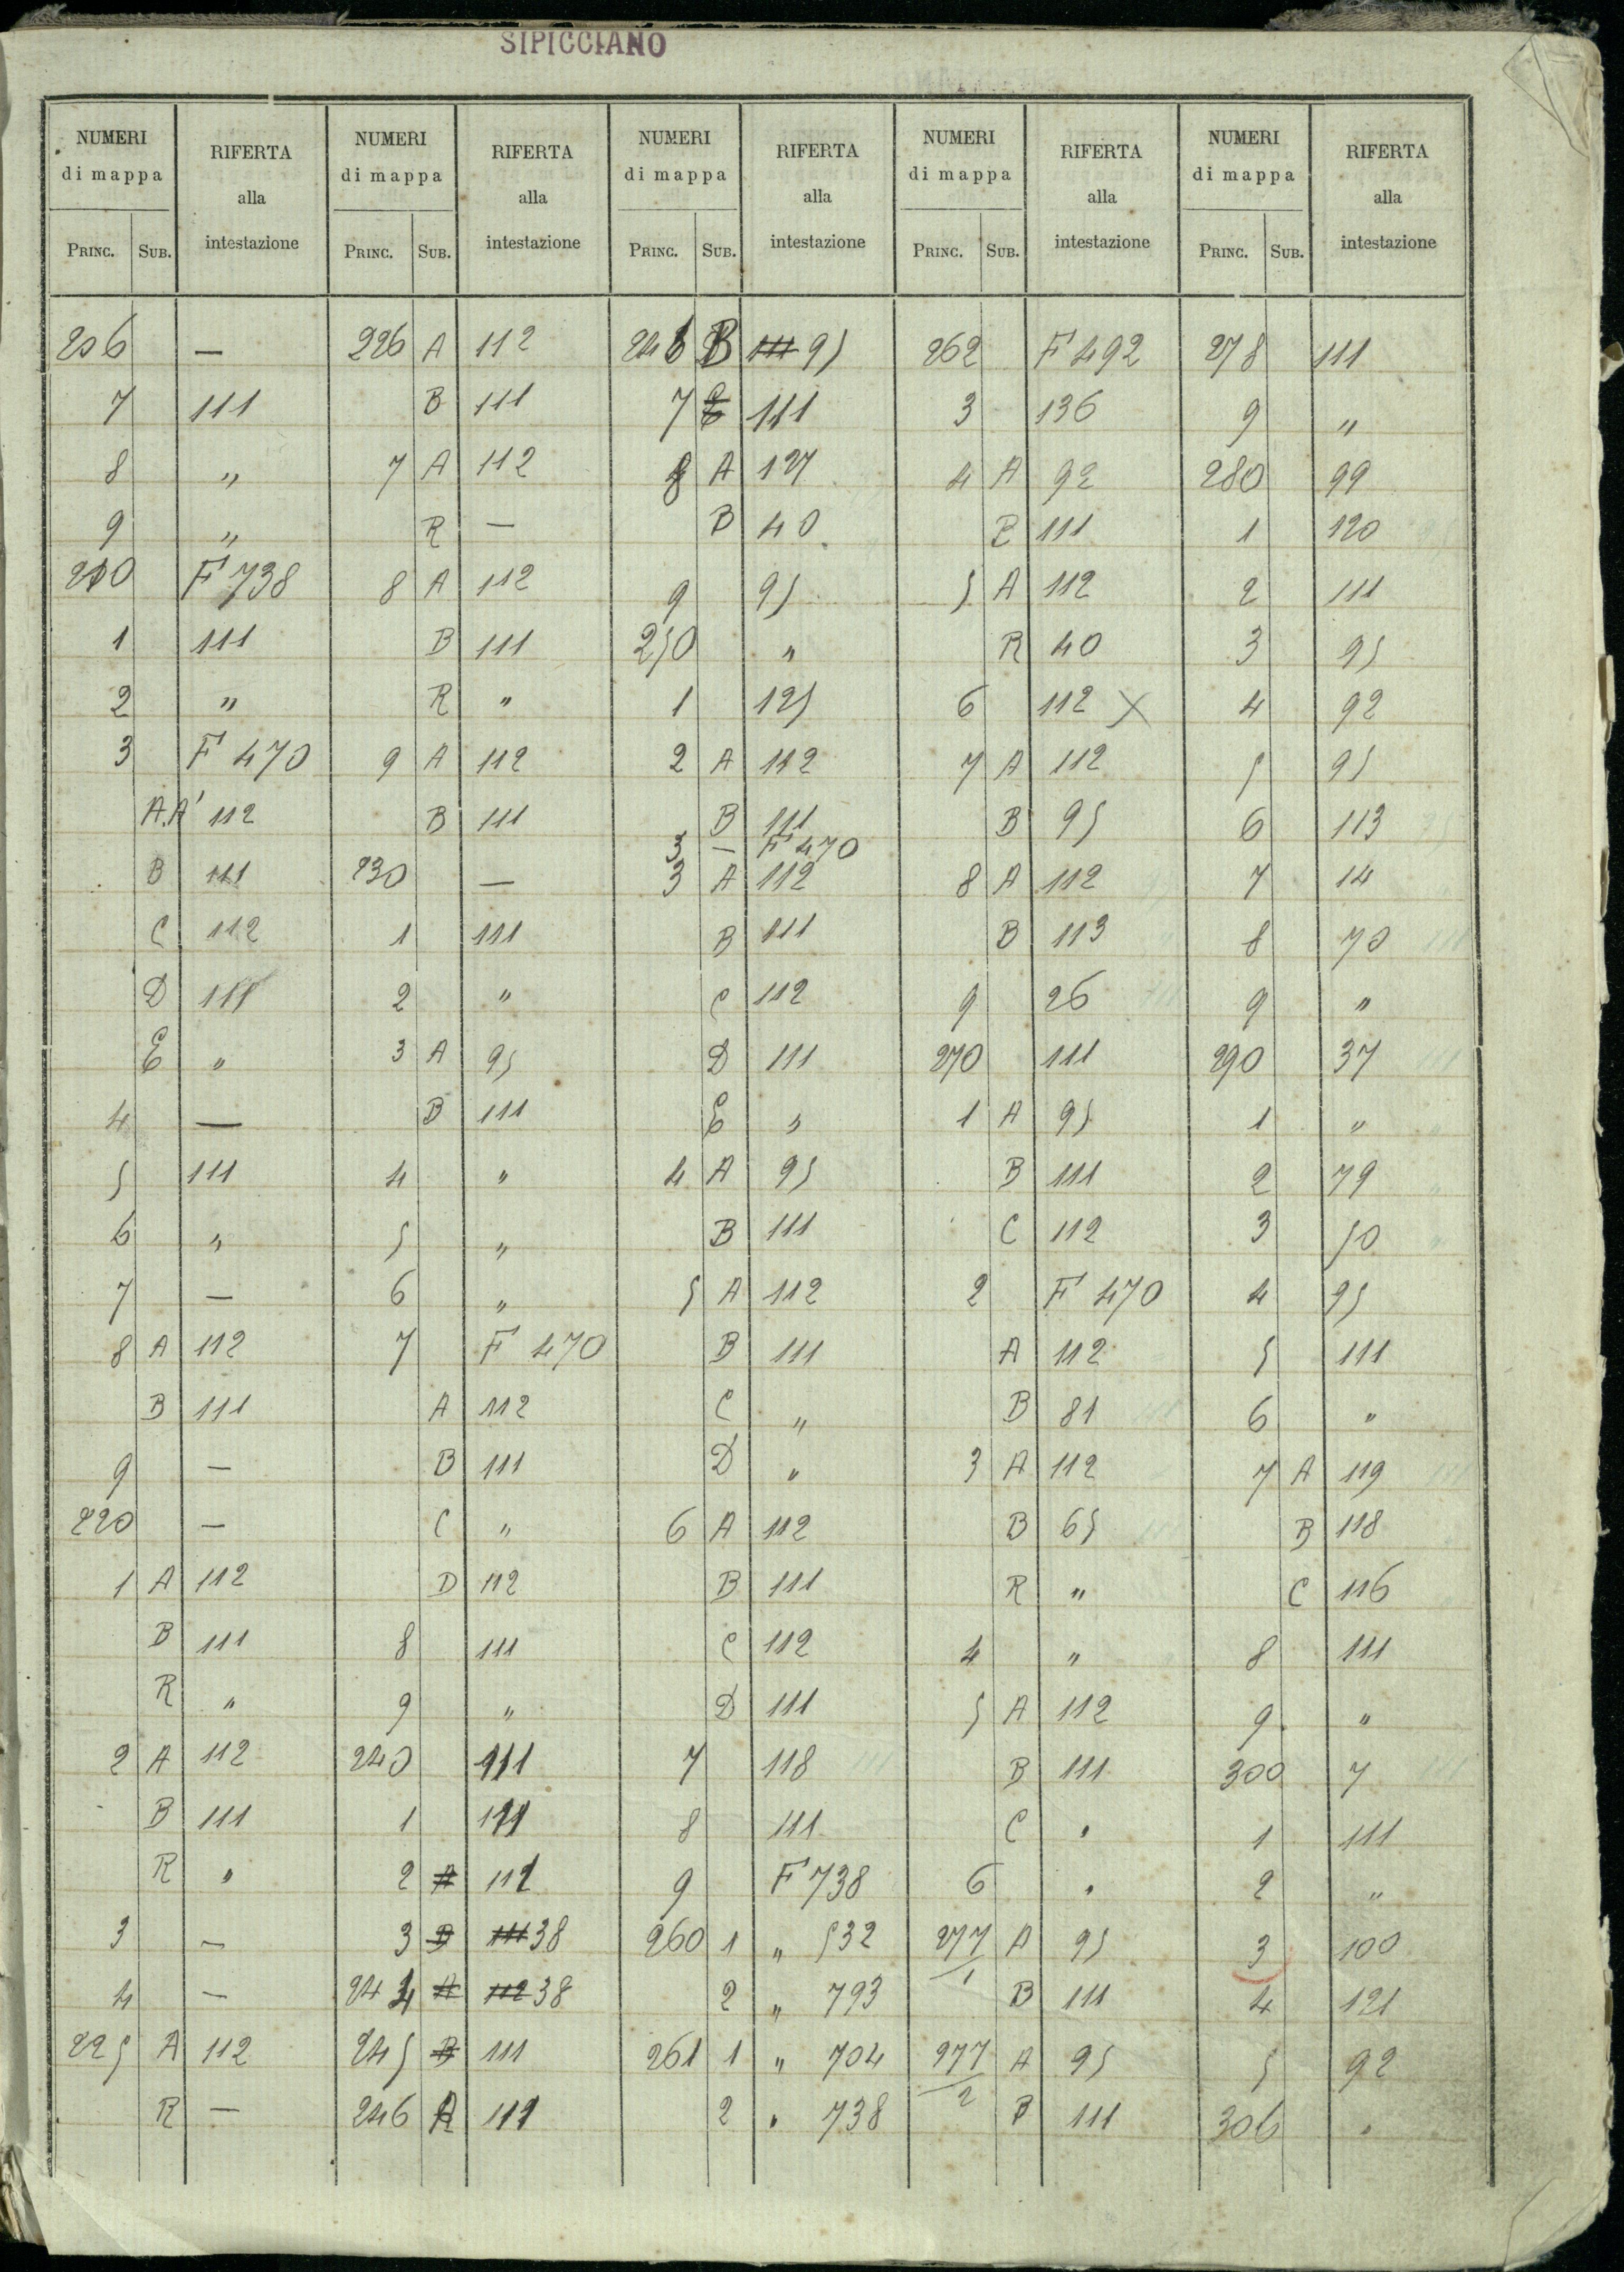 SIPICCIANO
NUMERI di mappa RIFERTA alla intestazione NUMERI di mappa RIFERTA alla intestazione NUMERI di mappa RIFERTA alla intestazione NUMERI di mappa RIFERTA alla intestazione NUMERI di mappa RIFERTA alla intestazione
PRINC. SUB. PRINC. SUB. PRINC. SUB. PRINC. SUB. PRINC. SUB.
206 — 226 A 112 246 B 111 95 262 F 492 278 111
7 111 B 111 7 111 3 136 9 "
8 " 7 A 112 8 A 127 4 A 92 280 99
9 " R — B 40 B 111 1 120
210 F 738 8 A 112 9 95 5 A 112 2 111
1 111 B 111 250 " R 40 3 95
2 " R " 1 125 6 112 X 4 92
3 F 470 9 A 112 2 A 112 7 A 112 5 95
A.A' 112 B 111 B 111 B 95 6 113
3 — F 470
B 111 230 — 3 A 112 8 A 112 7 14
C 112 1 111 B 111 B 113 8 70
D 111 2 " C 112 9 26 9 "
E " 3 A 95 D 111 270 111 290 37
4 — B 111 E " 1 A 95 1 "
5 111 4 " 4 A 95 B 111 2 79
6 " 5 " B 111 C 112 3 50
7 — 6 " 5 A 112 2 F 470 4 95
8 A 112 7 F 470 B 111 A 112 5 111
B 111 A 112 C " B 81 6 "
9 — B 111 D " 3 A 112 7 A 119
220 — C " 6 A 112 B 65 B 118
1 A 112 D 112 B 111 R " C 116
B 111 8 111 C 112 4 " 8 111
R " 9 " D 111 5 A 112 9 "
2 A 112 240 111 7 118 B 111 300 7
B 111 1 111 8 111 C " 1 111
R " 2 A 112 9 F 738 6 " 2 "
3 — 3 B 111 38 260 1 " 532 277/1 A 95 3 100
4 — 244 A 112 38 2 " 793 B 111 4 121
225 A 112 245 B 111 261 1 " 704 277/2 A 95 5 92
R — 246 A 111 2 " 738 B 111 306 "